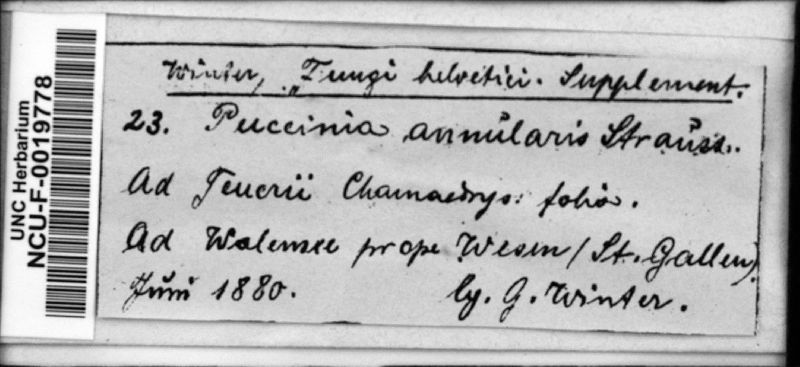 UNC Herbarium
NCU-F-0019778
Winter, „Fungi helvetici. Supplement.
23. Puccinia annularis Strauss.
Ad Teucrii Chamaedrys. folia.
Ad Walensee prope Wesen (St. Gallen).
Juni 1880. lg. G. Winter.